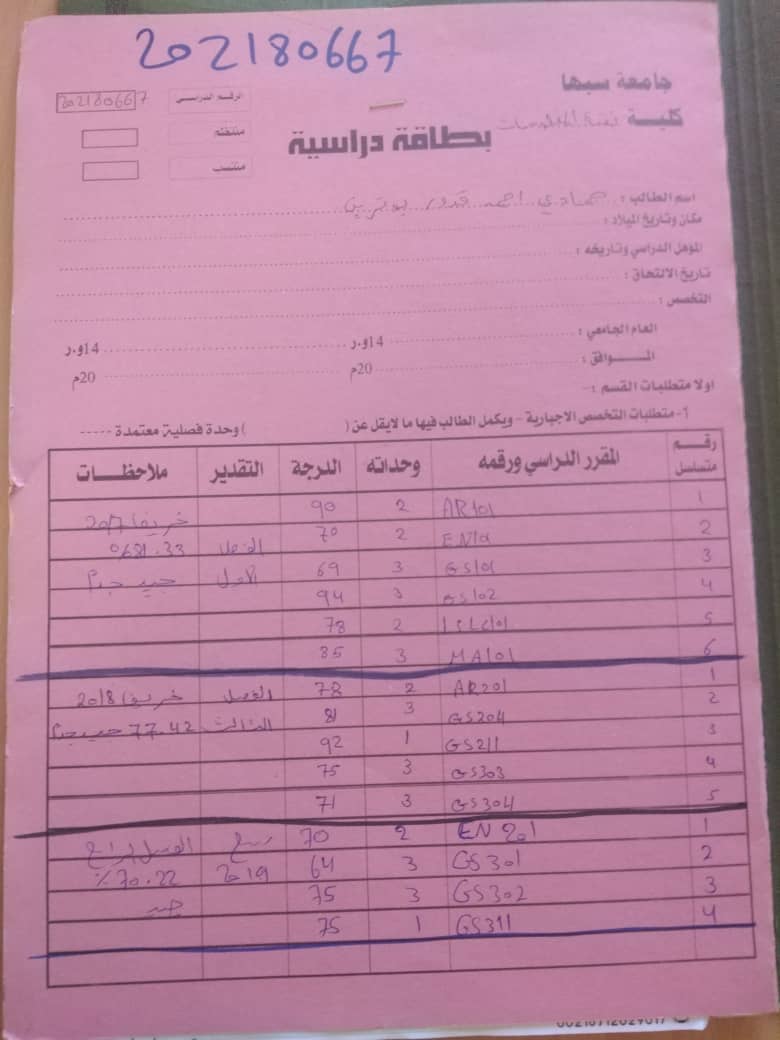 202180667
جامعة سبها
كلية تقنية المعلومات
الرقم الدراسي 202180667
منتظم
منتسب
بطاقة دراسية
اسم الطالب : حمادي احمد قدور
مكان وتاريخ الميلاد :
المؤهل الدراسي وتاريخه :
تاريخ الالتحاق :
التخصص :
العام الجامعي : 14و.ر 14و.ر
الموافق : 20م 20م
اولا متطلبات القسم :-
أ- متطلبات التخصص الاجبارية - ويكمل الطالب فيها ما لايقل عن ( ) وحدة فصلية معتمدة -----
رقم متسلسل المقرر الدراسي ورقمه وحداته الدرجة التقدير ملاحظات
1 AR101 2 90 خريف 2017
2 EN101 2 70 الفصل 81.33%
3 GS101 3 69 الأول جيد جداً
4 GS102 3 94
5 2 78
6 MA101 3 85
1 AR201 2 78 الفصل خريف 2018
2 GS204 3 81 الثالث 77.42 جيد جداً
3 GS211 1 92
4 GS303 3 75
5 GS304 3 71
1 EN201 2 70 ربيع الفصل الرابع
2 GS301 3 64 2019 70.22%
3 GS302 3 75 جيد
4 GS311 1 75